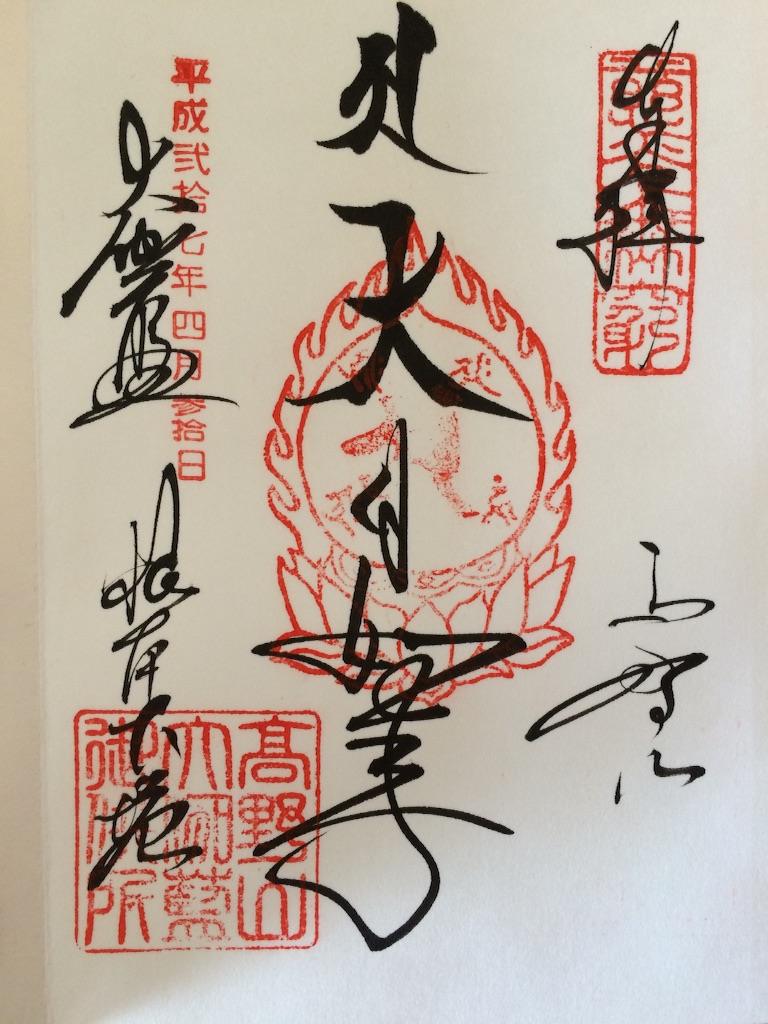 奉拝
高野山
大日如来
平成弐拾七年四月参拾日
根本大塔
高野山
大伽藍
御供所